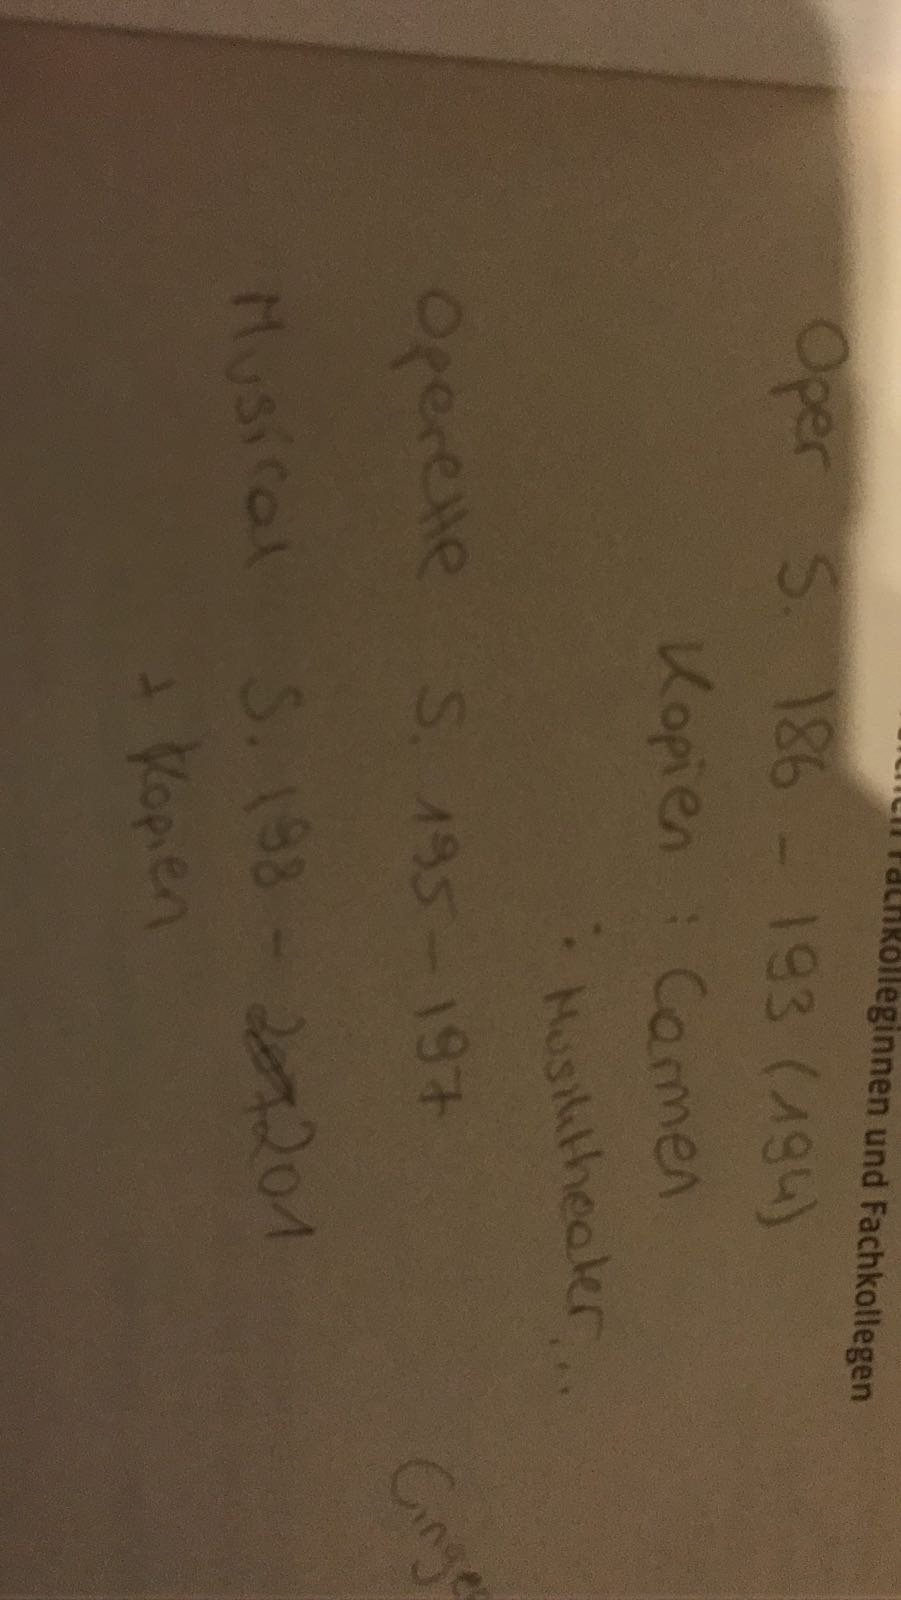 Fachkolleginnen und Fachkollegen
Oper S. 186 - 193 (194)
Kopien : Carmen
: Musiktheater...
Operette S. 195 - 197
Musical S. 198 - 201
+ Kopien